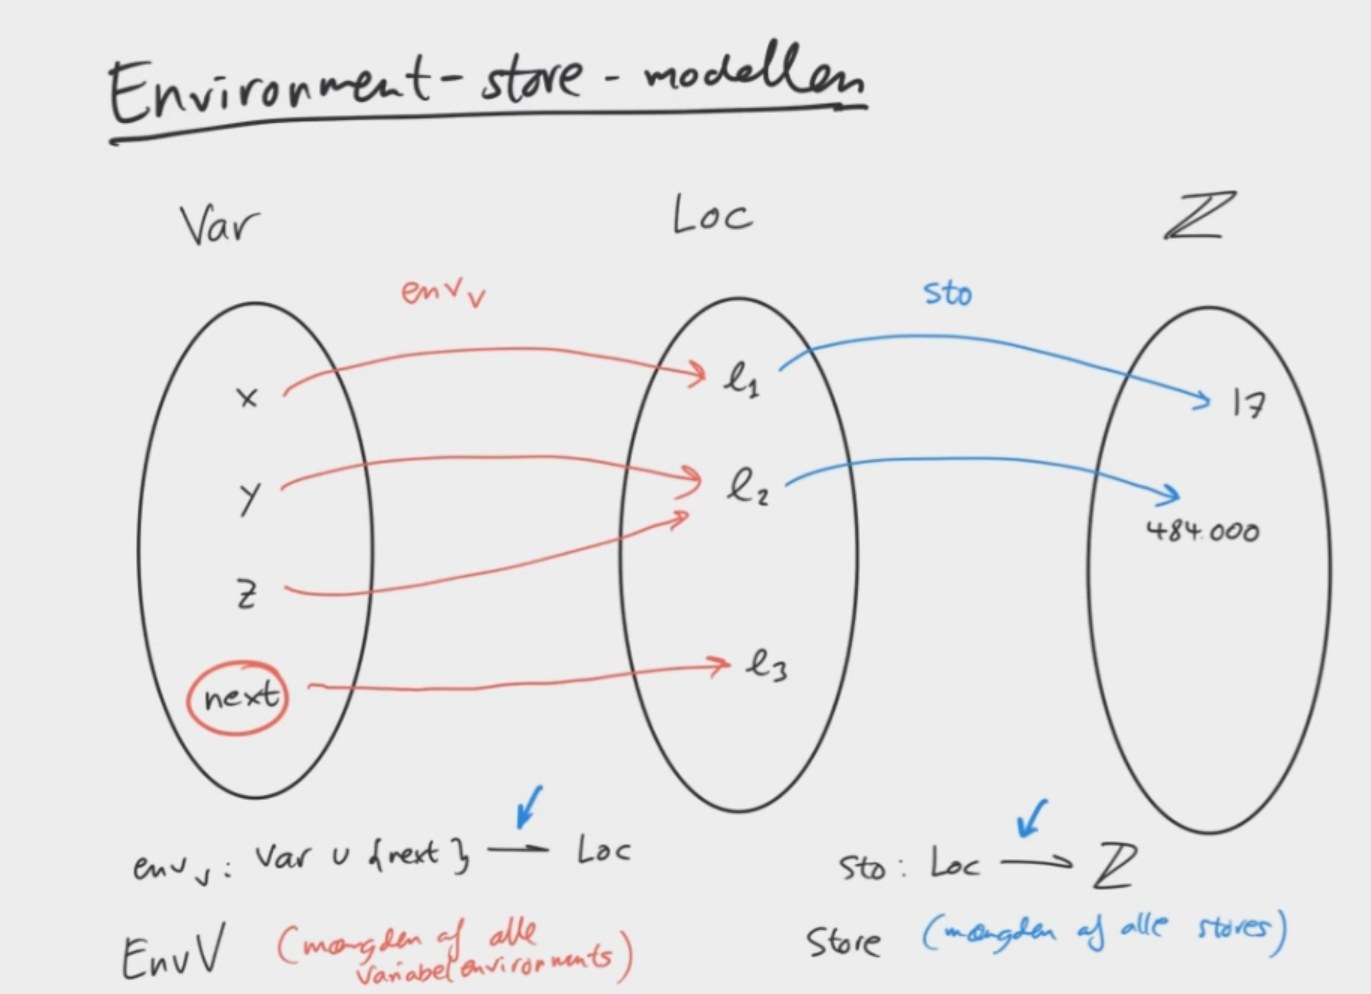 Environment-store-modellen
Var Loc ℤ
env_v sto
x l₁ 17
y l₂ 484.000
z
next l₃
env_v : Var ∪ {next} ⇀ Loc
sto : Loc ⇀ ℤ
EnvV (mængden af alle
variabelenvironments)
Store (mængden af alle stores)